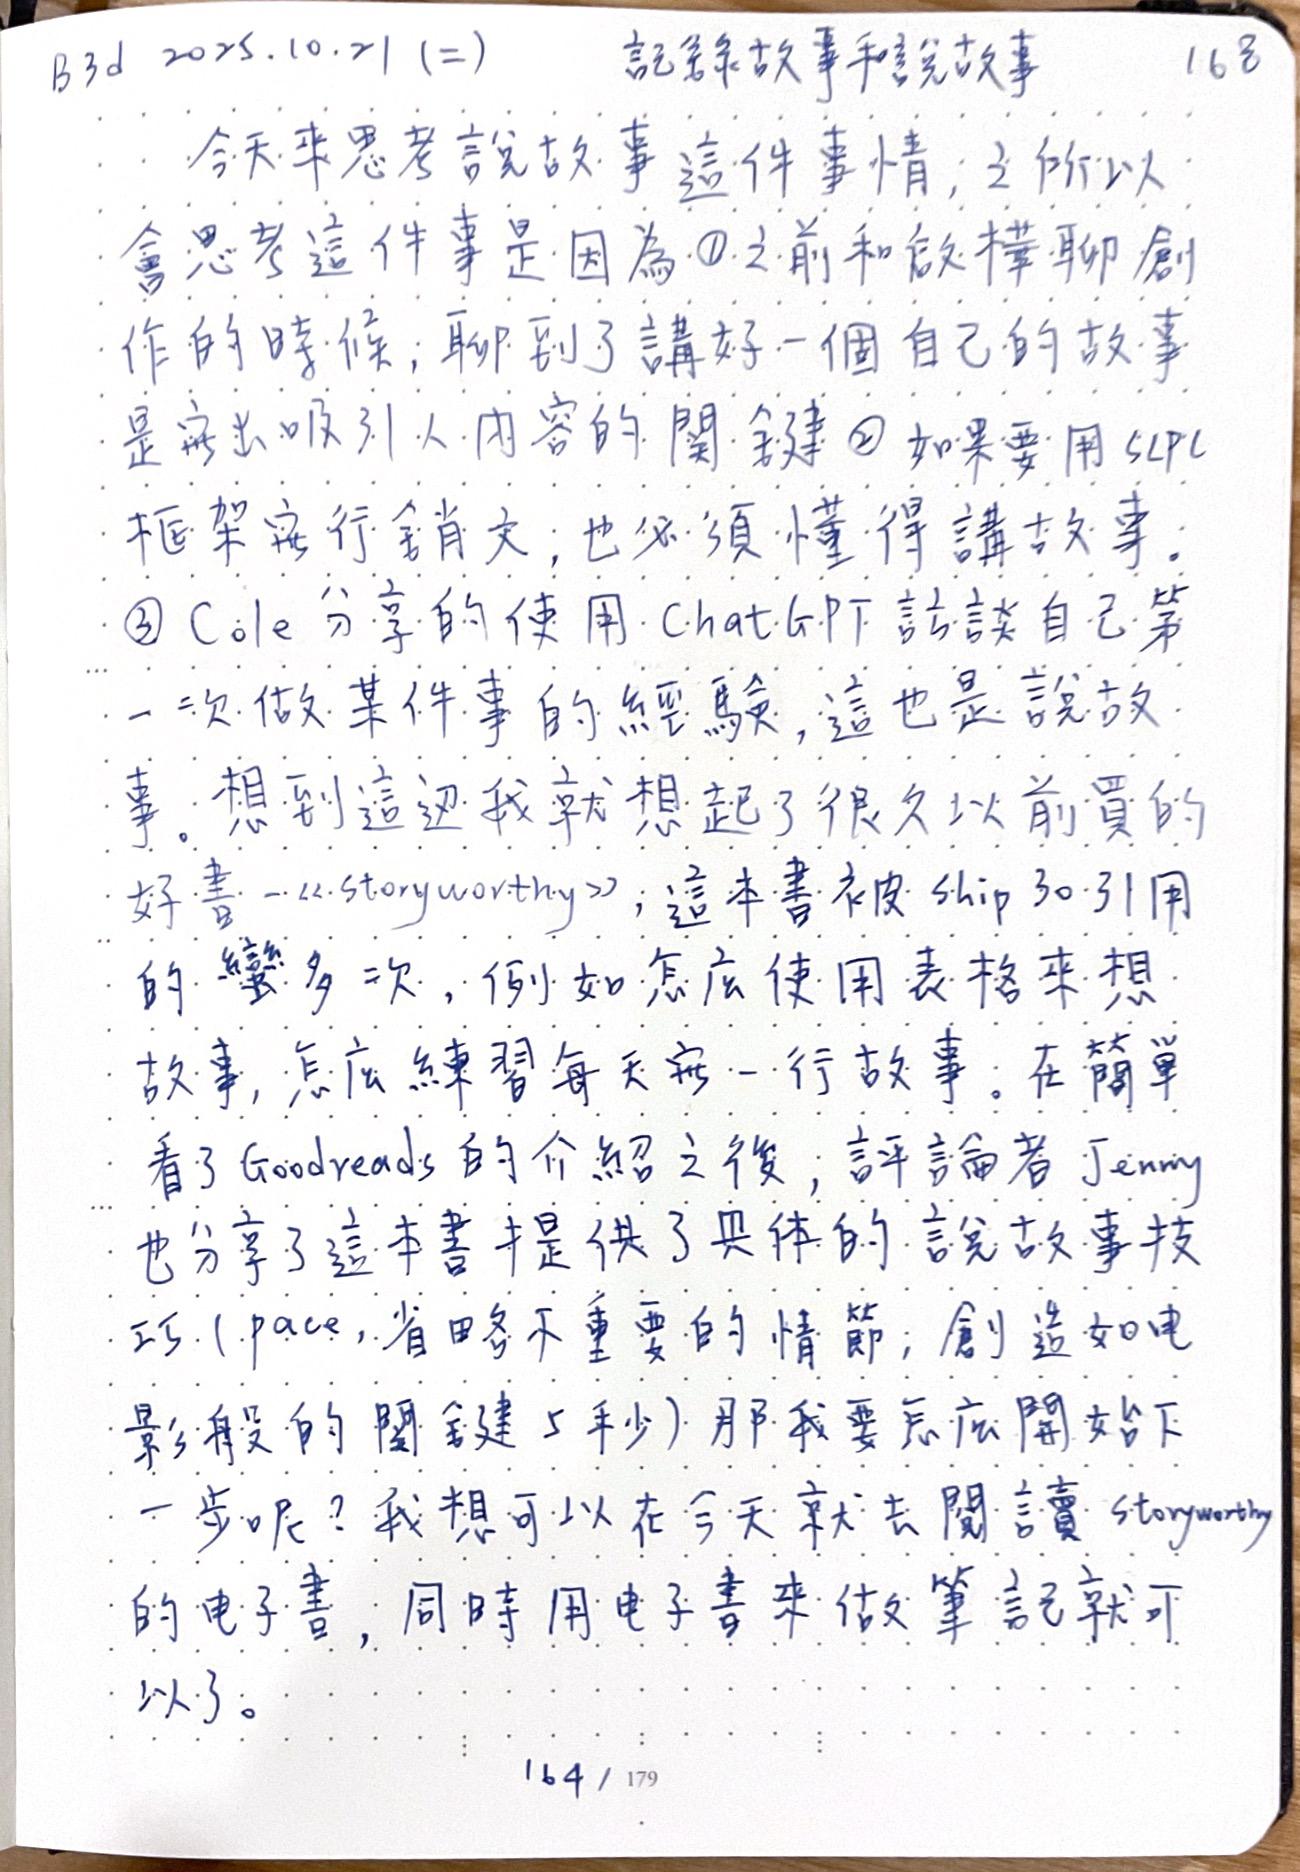 B3d 2025.10.21 (二) 記錄故事和說故事 163
今天來思考說故事這件事情,之所以
會思考這件事是因為①之前和啟樺聊創
作的時候,聊到了講好一個自己的故事
是寫出吸引人內容的關鍵②如果要用SLPC
框架寫行銷文,也必須懂得講故事。
③ Cole分享的使用ChatGPT訪談自己第
一次做某件事的經驗,這也是說故
事。想到這边我就想起了很久以前買的
好書-《storyworthy》,這本書被ship 30引用
的蠻多次,例如怎麼使用表格來想
故事,怎麼練習每天寫一行故事。在簡單
看了Goodreads的介紹之後,評論者Jenny
也分享了這本書提供了具体的說故事技
巧(pace,省略不重要的情節,創造如电
影般的關鍵5秒)那我要怎麼開始下
一步呢?我想可以在今天就去閱讀storyworthy
的电子書,同時用电子書來做筆記就可
以了。
164 / 179